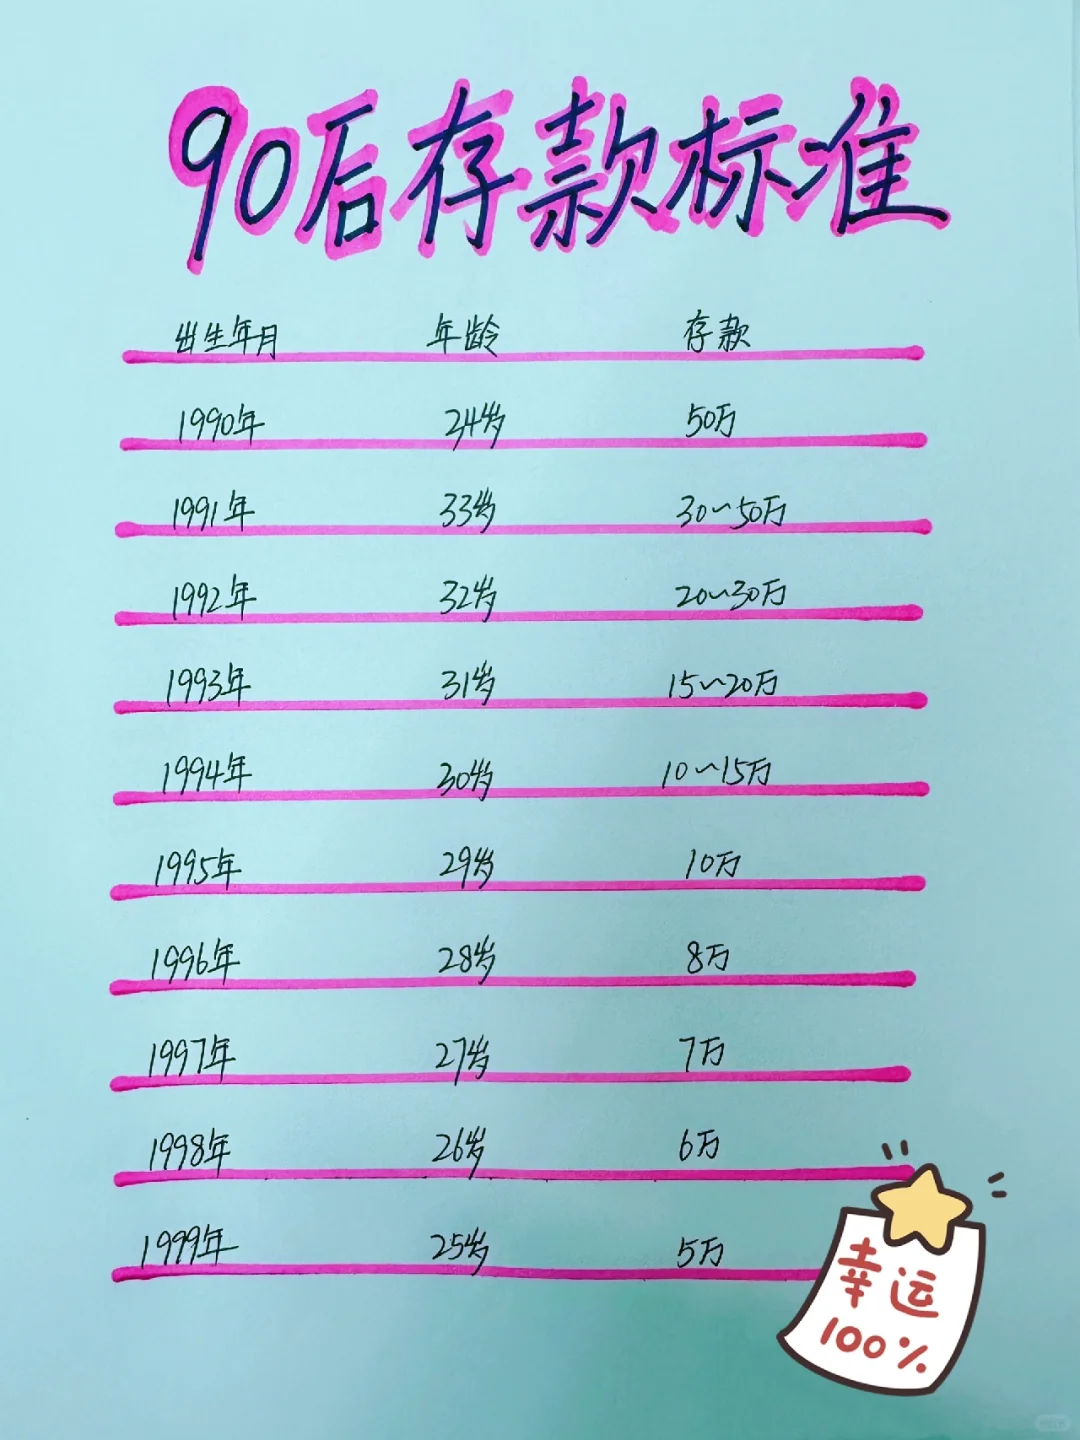 90后存款标准
出生年月 年龄 存款
1990年 24岁 50万
1991年 33岁 30~50万
1992年 32岁 20~30万
1993年 31岁 15~20万
1994年 30岁 10~15万
1995年 29岁 10万
1996年 28岁 8万
1997年 27岁 7万
1998年 26岁 6万
1999年 25岁 5万
幸运
100%